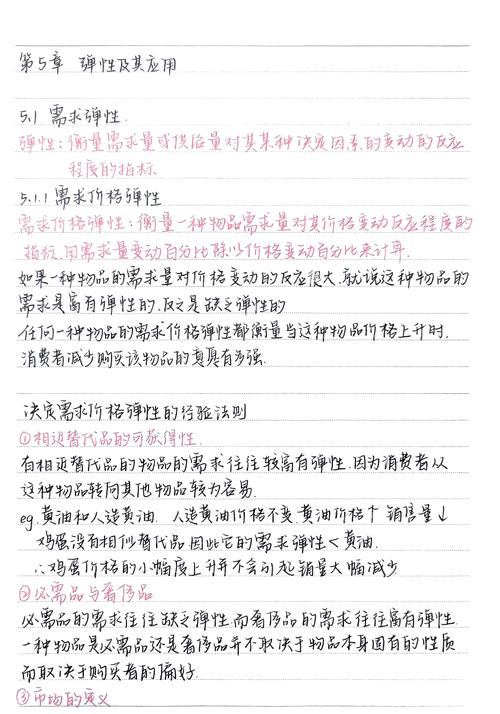 第5章 弹性及其应用
5.1 需求弹性.
弹性:衡量需求量或供给量对其某种决定因素的变动的反应
程度的指标
5.1.1 需求价格弹性
需求价格弹性:衡量一种物品需求量对其价格变动反应程度的
指标,用需求量变动百分比除以价格变动百分比来计算.
如果一种物品的需求量对价格变动的反应很大,就说这种物品的
需求是富有弹性的,反之是缺乏弹性的
任何一种物品的需求价格弹性都衡量当这种物品价格上升时,
消费者减少购买该物品的意愿有多强.
决定需求价格弹性的经验法则
①相近替代品的可获得性.
有相近替代品的物品的需求往往较富有弹性,因为消费者从
这种物品转向其他物品较为容易.
eg.黄油和人造黄油. 人造黄油价格不变,黄油价格↑ 销售量↓
鸡蛋没有相似替代品,因此它的需求弹性<黄油.
∴鸡蛋价格的小幅度上升并不会引起销量大幅减少
②必需品与奢侈品
必需品的需求往往缺乏弹性,而奢侈品的需求往往富有弹性.
一种物品是必需品还是奢侈品并不取决于物品本身固有的性质
而取决于购买者的偏好.
③市场的定义